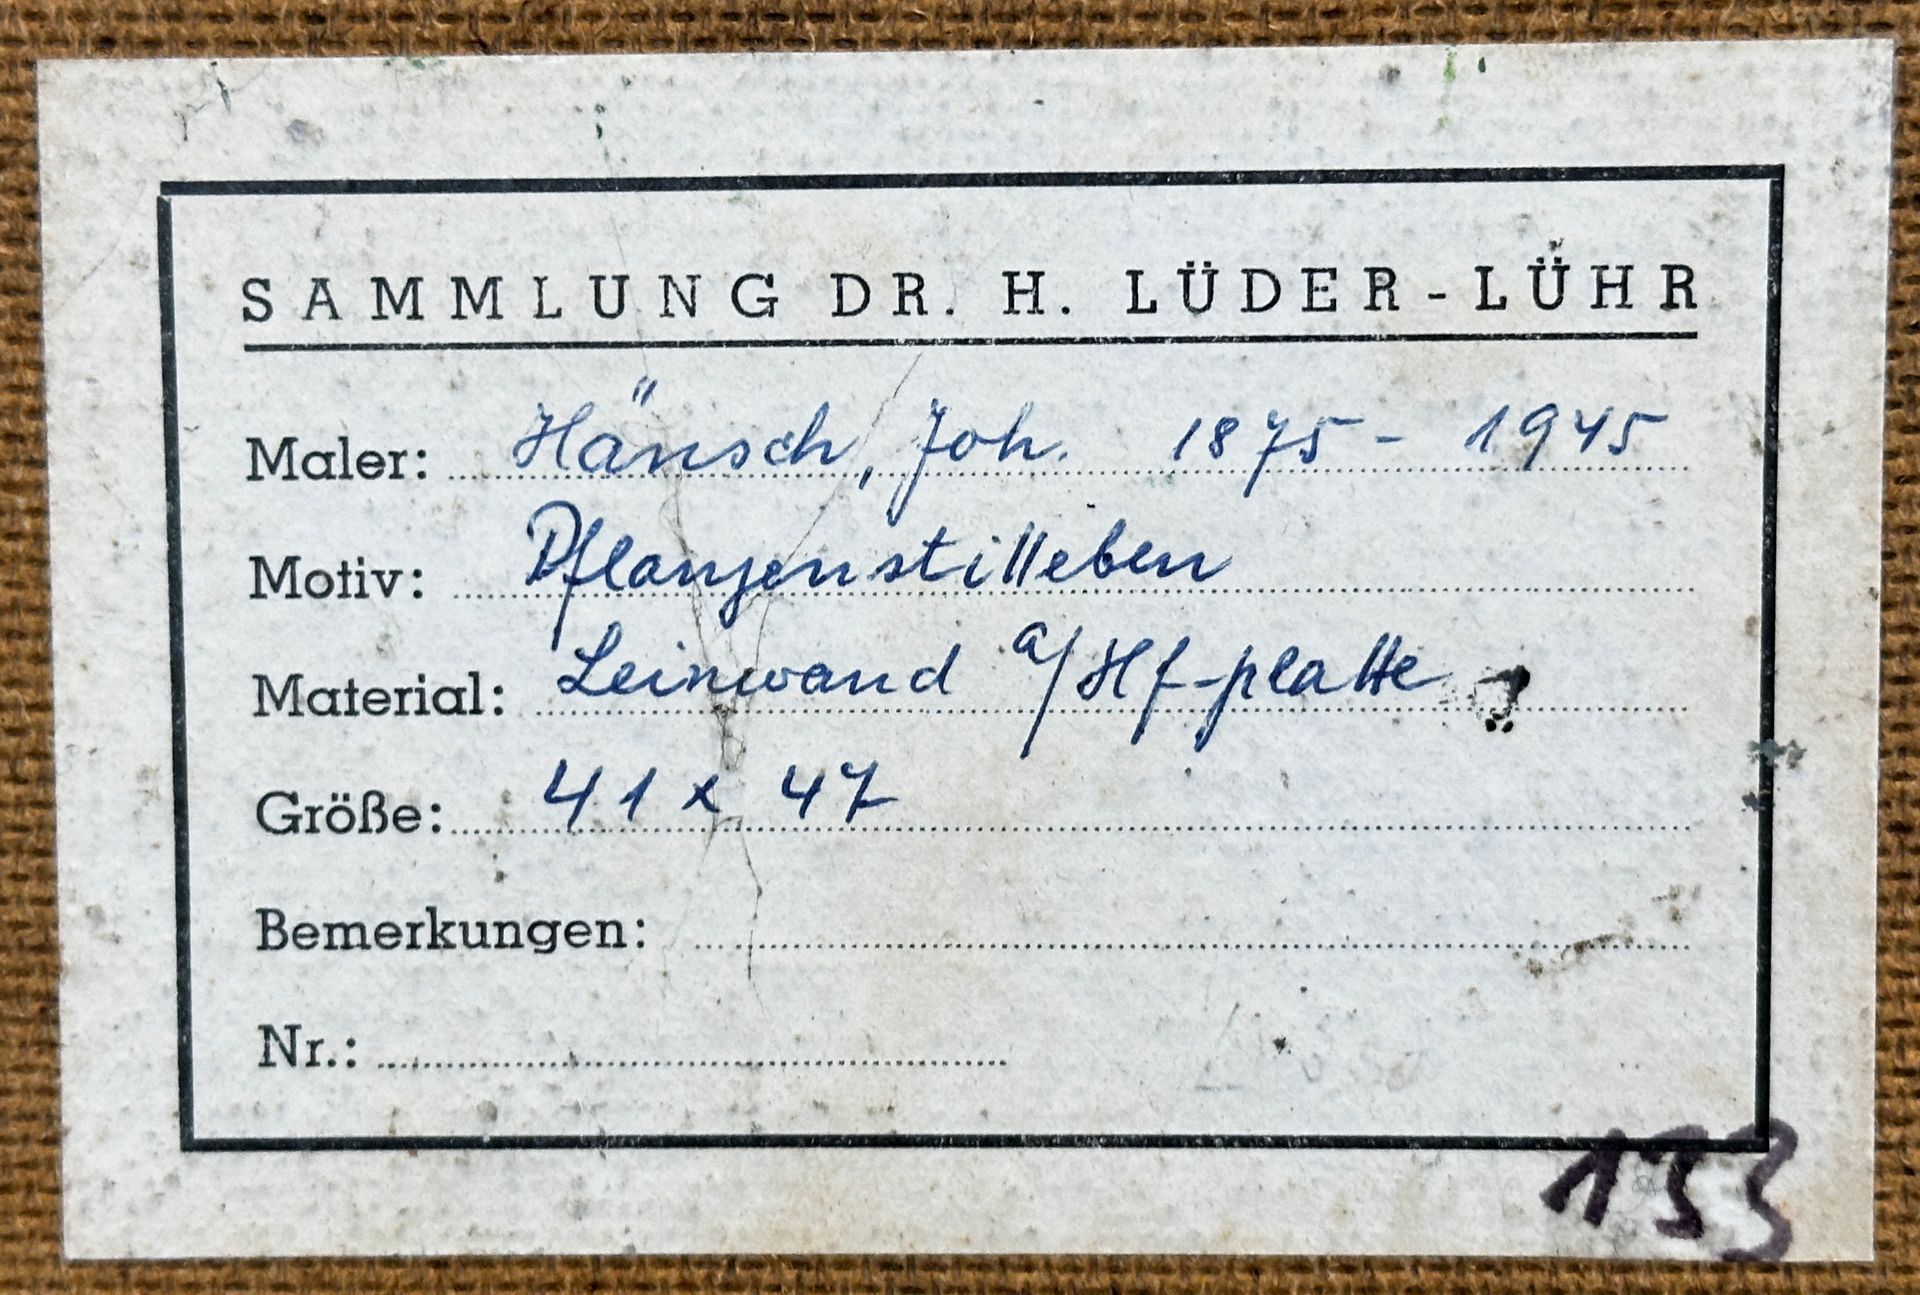 SAMMLUNG DR. H. LÜDER-LÜHR
Maler: Hänsch, Joh. 1875 - 1945
Motiv: Pflanzenstilleben
Material: Leinwand a/Hf-platte
Größe: 41 x 47
Bemerkungen:
Nr.:
133